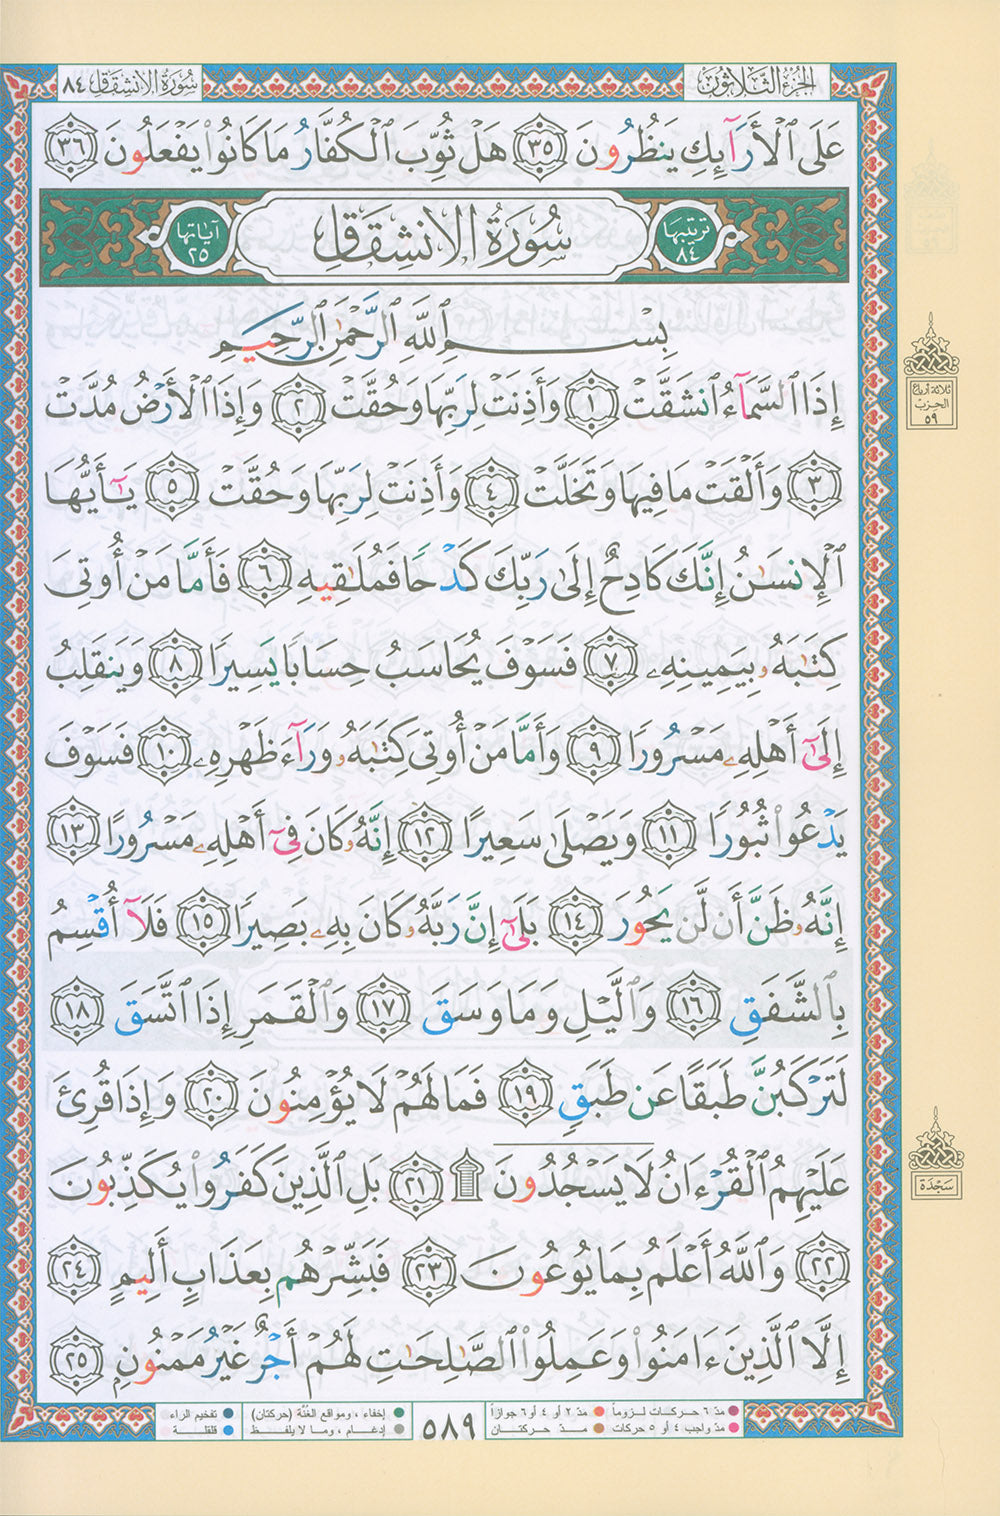 الجزء الثلاثون
سورة الانشقاق ٨٤
عَلَى ٱلْأَرَآئِكِ يَنظُرُونَ ٣٥ هَلْ ثُوِّبَ ٱلْكُفَّارُ مَا كَانُوا۟ يَفْعَلُونَ ٣٦
ترتيبها ٨٤
سُورَةُ الانشِقَاق
آياتها ٢٥
بِسْمِ ٱللَّهِ ٱلرَّحْمَٰنِ ٱلرَّحِيمِ
إِذَا ٱلسَّمَآءُ ٱنشَقَّتْ ١ وَأَذِنَتْ لِرَبِّهَا وَحُقَّتْ ٢ وَإِذَا ٱلْأَرْضُ مُدَّتْ
٣ وَأَلْقَتْ مَا فِيهَا وَتَخَلَّتْ ٤ وَأَذِنَتْ لِرَبِّهَا وَحُقَّتْ ٥ يَٰٓأَيُّهَا
ٱلْإِنسَٰنُ إِنَّكَ كَادِحٌ إِلَىٰ رَبِّكَ كَدْحًا فَمُلَٰقِيهِ ٦ فَأَمَّا مَنْ أُوتِىَ
كِتَٰبَهُۥ بِيَمِينِهِۦ ٧ فَسَوْفَ يُحَاسَبُ حِسَابًا يَسِيرًا ٨ وَيَنقَلِبُ
إِلَىٰٓ أَهْلِهِۦ مَسْرُورًا ٩ وَأَمَّا مَنْ أُوتِىَ كِتَٰبَهُۥ وَرَآءَ ظَهْرِهِۦ ١٠ فَسَوْفَ
يَدْعُوا۟ ثُبُورًا ١١ وَيَصْلَىٰ سَعِيرًا ١٢ إِنَّهُۥ كَانَ فِىٓ أَهْلِهِۦ مَسْرُورًا ١٣
إِنَّهُۥ ظَنَّ أَن لَّن يَحُورَ ١٤ بَلَىٰٓ إِنَّ رَبَّهُۥ كَانَ بِهِۦ بَصِيرًا ١٥ فَلَآ أُقْسِمُ
بِٱلشَّفَقِ ١٦ وَٱلَّيْلِ وَمَا وَسَقَ ١٧ وَٱلْقَمَرِ إِذَا ٱتَّسَقَ ١٨
لَتَرْكَبُنَّ طَبَقًا عَن طَبَقٍ ١٩ فَمَا لَهُمْ لَا يُؤْمِنُونَ ٢٠ وَإِذَا قُرِئَ
عَلَيْهِمُ ٱلْقُرْءَانُ لَا يَسْجُدُونَ ۩ ٢١ بَلِ ٱلَّذِينَ كَفَرُوا۟ يُكَذِّبُونَ
٢٢ وَٱللَّهُ أَعْلَمُ بِمَا يُوعُونَ ٢٣ فَبَشِّرْهُم بِعَذَابٍ أَلِيمٍ ٢٤
إِلَّا ٱلَّذِينَ ءَامَنُوا۟ وَعَمِلُوا۟ ٱلصَّٰلِحَٰتِ لَهُمْ أَجْرٌ غَيْرُ مَمْنُونٍ ٢٥
ثلاثة أرباع
الحزب
٥٩
سَجْدَة
مدّ ٦ حركات لزوماً ● مدّ ٢ أو ٤ أو ٦ جوازاً
مدّ واجب ٤ أو ٥ حركات ● مدّ حركتان
٥٨٩
إخفاء، ومواقع الغُنَّة (حركتان) ● تفخيم الراء
إدغام، وما لا يلفظ ● قلقلة